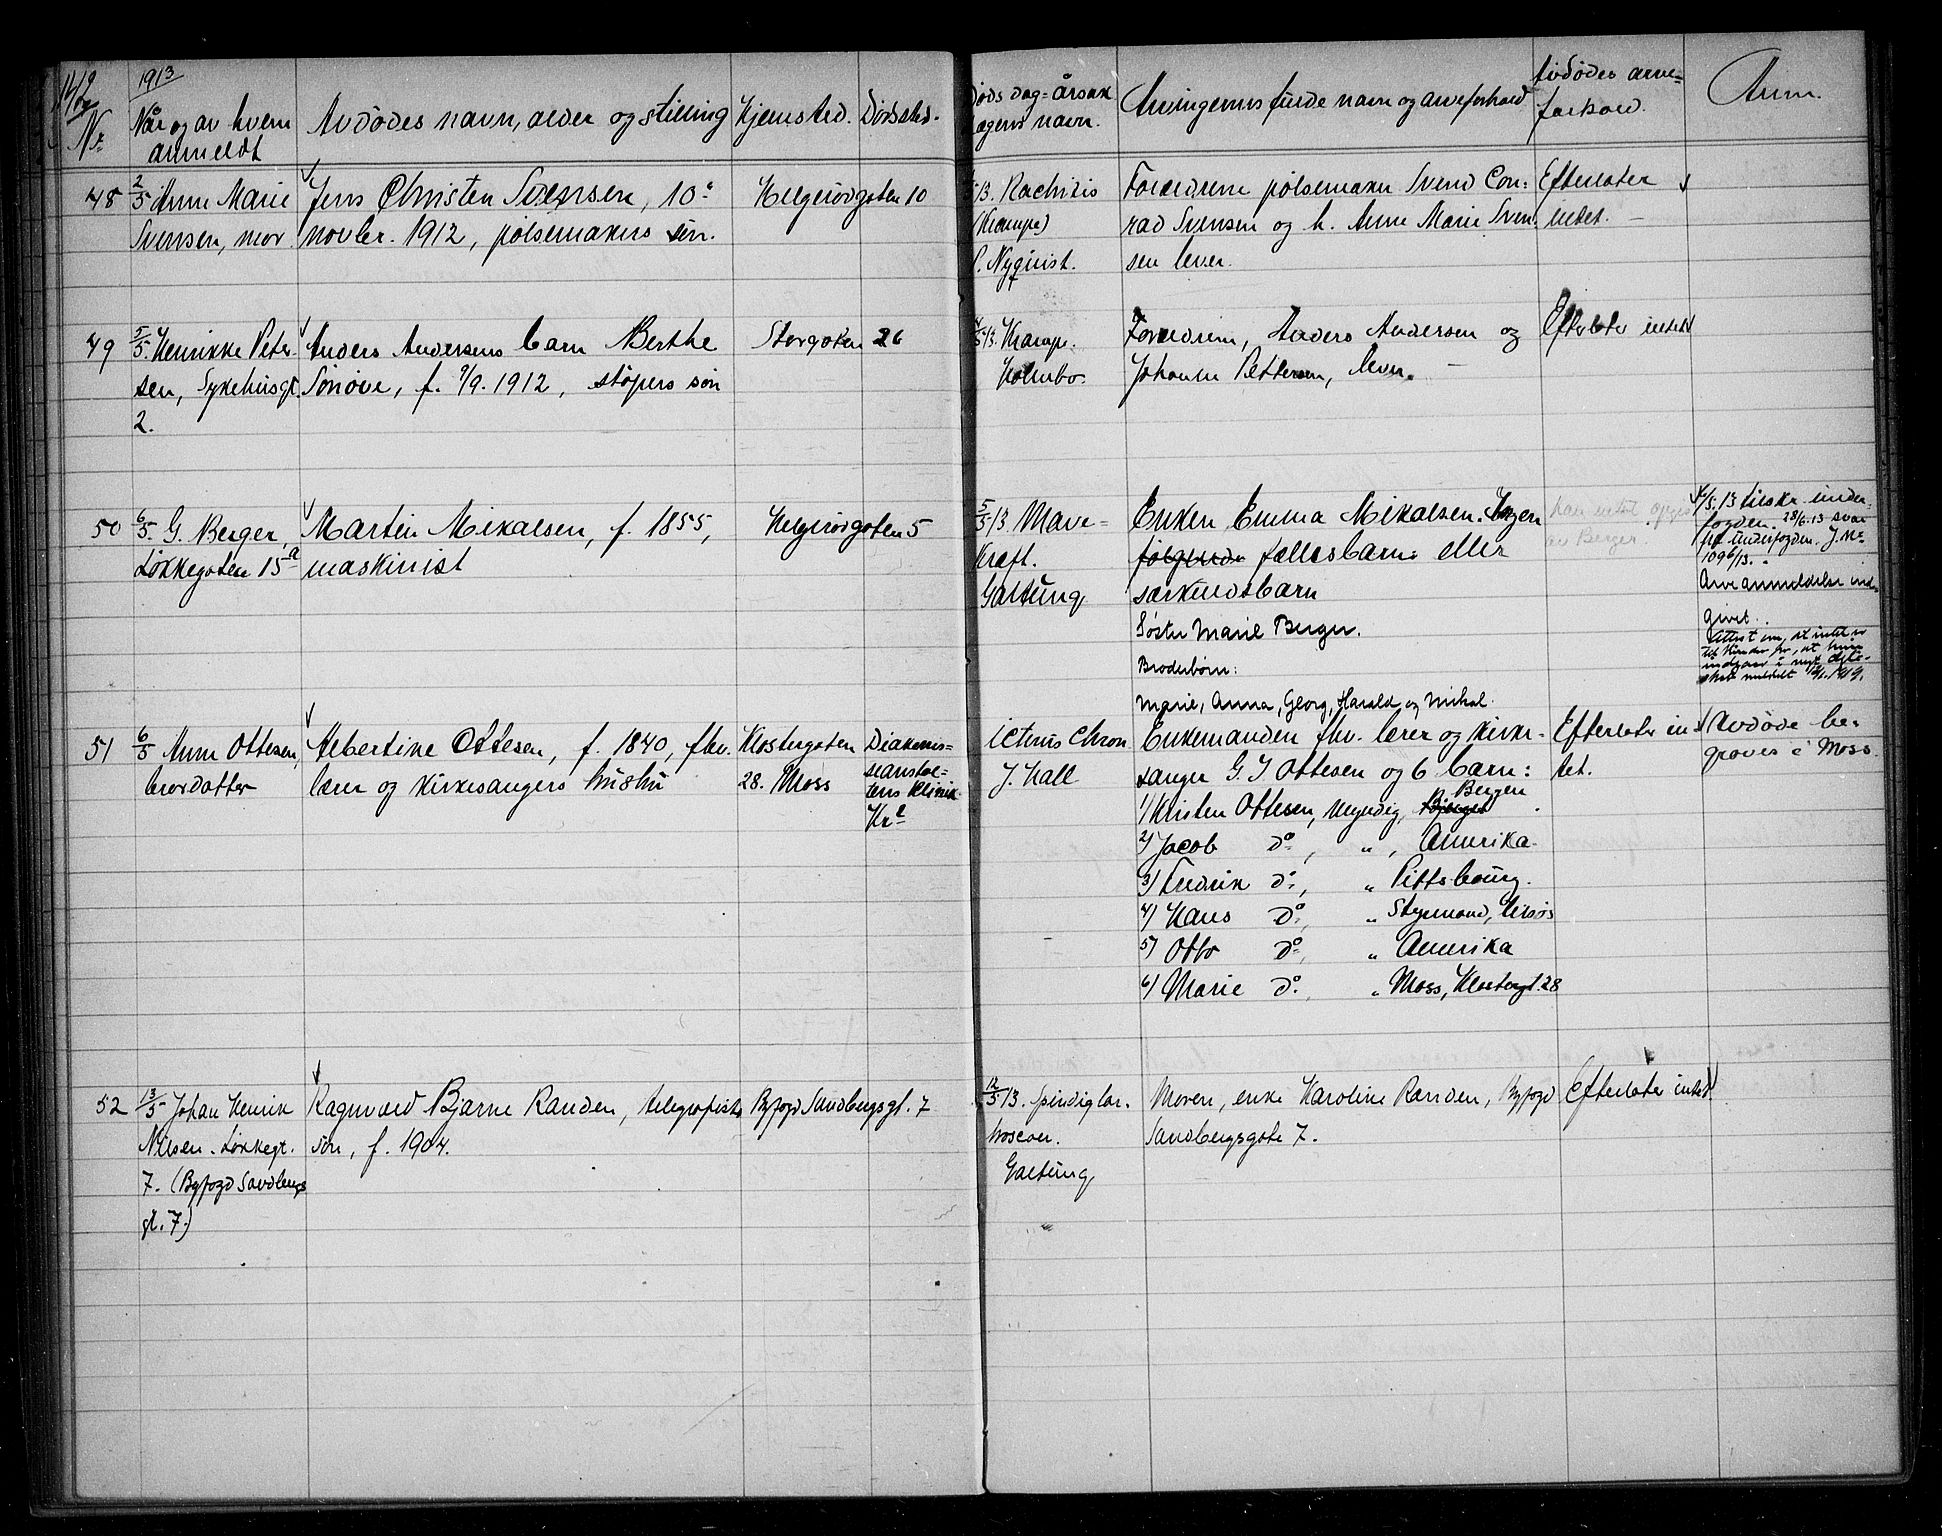 1913
Nr.
Når og av hvem
anmeldt
Avdødes navn, alder og stilling
Hjemsted.
Dødssted.
Døds dag= årsak
Lægens navn.
Arvingernes fulde navn og arveforhold
Avdødes arve=
forhold.
Anm.
48
2/5 Anne Marie
Svensen, mor
Jens Christen Svensen, 10de
novbr. 1912, pølsemakers søn.
Helgerødgaten 10
/13. Rachitis
(Krampe)
P. Nyquist.
Forældrene pølsemaker Svend Con=
rad Svensen og h. Anne Marie Sven=
sen lever.
Efterlater
intet. —
49
5/5. Henrikke Peter
sen, Sykehusgt.
2.
Anders Andersens barn Berthe
Sønøve, f. 9/9. 1912, støpers søn
Storgaten 26
4/5 13. Krampe.
Holmbo.
Forældrene, Anders Andersen og
Johanne Pettersen, lever. —
Efterlater intet
50
6/5. G. Berger,
Løkkegaten 15a
Martin Mikalsen, f. 1855,
maskinist
Helgerødgaten 5
5/5 13 Mave=
kræft.
Galtung
Enken Emma Mikalsen. Ingen
følgende fællesbarn= eller
særkuldsbarn
Søster Marie Berger.
Broderbørn:
Marie, Anna, Georg, Harald og Mikal.
Kan intet opgis
av Berger.
16/5. 13 tilskr. under
fogden. 28/6. 13 svar
fra underfogden. J. Nr.
1096/13.
Arveanmeldelse ind=
givet.
Attest om, at intet er
til hinder for, at hun
indgaar i nyt ekte=
skab meddelt 1919.
51
6/5 Anne Ottesen,
brordatter
Albertine Ottesen, f. 1840, fhv.
lærer og kirkesangers hustru
Klostergaten
28. Moss
Diakonis=
seanstal=
tens Klinik
Kra
icterus chron
J. Hall
Enkemanden fhv. lærer og kirke=
sanger G. J Ottesen og 6 barn:
1) Kristen Ottesen, myndig, Bjerget Bergen
2) Jacob do, „, Amerika.
3) Fredrik do, „ Pittsbourg.
4) Hans do, „ Styrmand, tilsjøs
5) Otto do, „ Amerika
6) Marie do, „ Moss, Klostergt. 28
Efterlater in=
tet.
Avdøde be=
graves i Moss
52
13/5 Johan Henrik
Nilsen. Løkkegt.
7. (Byfogd Sandbergs
gt. 7.)
Ragnvald Bjarne Randen, telegrafists
søn, f. 1904.
Byfogd Sandbergsgt. 7
12/5 13.
Galtung
Moren, enke Karoline Randen, Byfogd
Sandbergsgate 7.
Efterlater intet